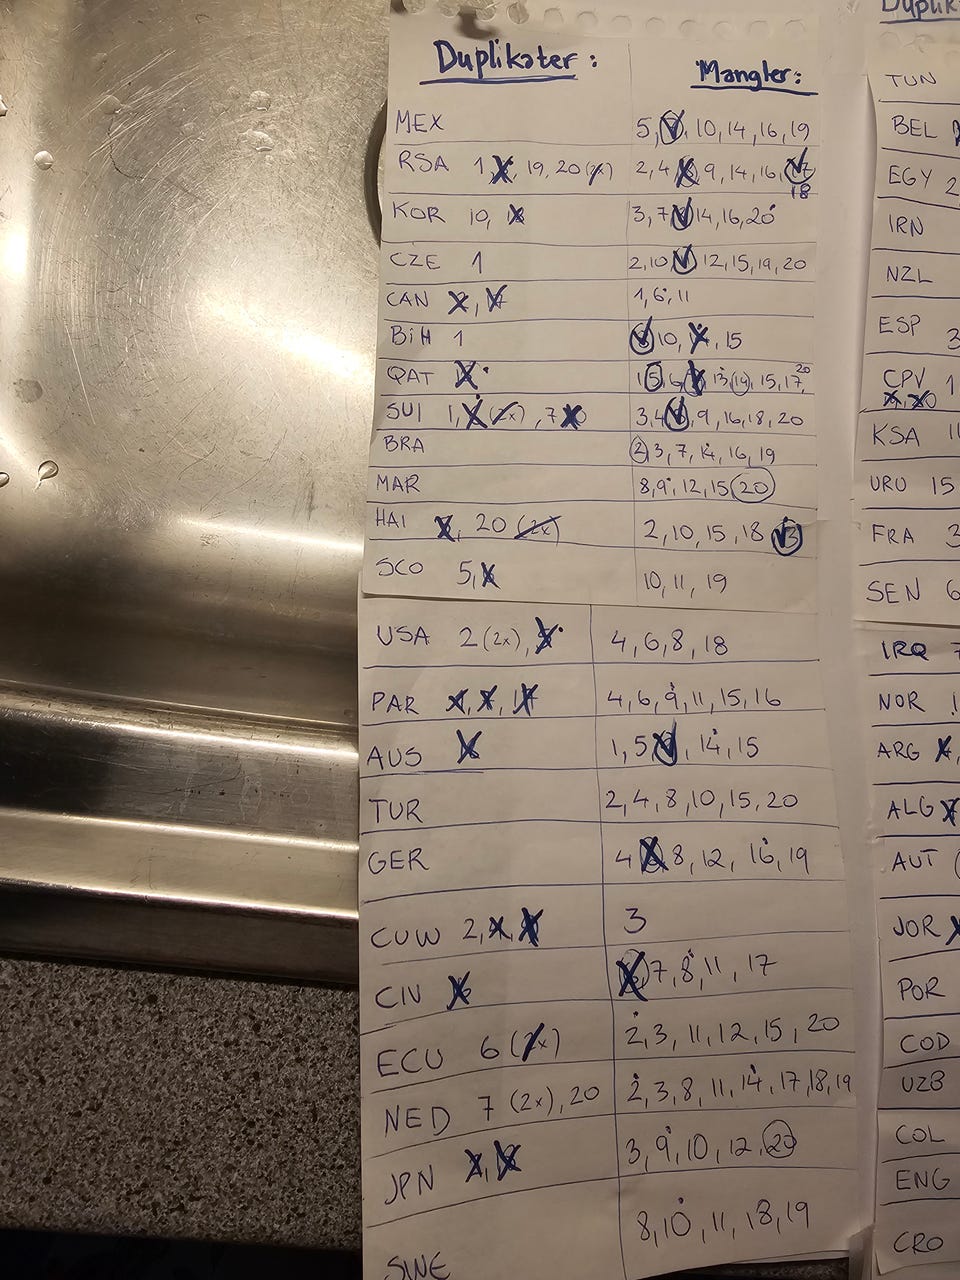 Duplikater: Mangler:
MEX 5, 10, 14, 16, 19
RSA 1, 19, 20 (2x) 2, 4 9, 14, 16, 17
18
KOR 10, 3, 7 14, 16, 20
CZE 1 2, 10, 11, 12, 15, 19, 20
CAN 1, 6, 11
BiH 1 10, 15
QAT 1 5, 6 13, 14, 15, 17, 20
SUI 1, (2x), 7 3, 4 9, 16, 18, 20
BRA 2, 3, 7, 14, 16, 19
MAR 8, 9, 12, 15 20
HAI 20 (2x) 2, 10, 15, 18 13
SCO 5, 10, 11, 19
USA 2 (2x), 4, 6, 8, 18
PAR 4, 6, 9, 11, 15, 16
AUS 1, 5 14, 15
TUR 2, 4, 8, 10, 15, 20
GER 4 8, 12, 16, 19
CUW 2, 3
CIV 7, 8, 11, 17
ECU 6 (2x) 2, 3, 11, 12, 15, 20
NED 7 (2x), 20 2, 3, 8, 11, 14, 17, 18, 19
JPN 3, 9, 10, 12, 20
SWE 8, 10, 11, 18, 19
Duplik
TUN
BEL
EGY 2
IRN
NZL
ESP 3
CPV 1
KSA 11
URU 15
FRA 3
SEN 6
IRQ 7
NOR
ARG
ALG
AUT (
JOR
POR
COD
UZB
COL
ENG
CRO